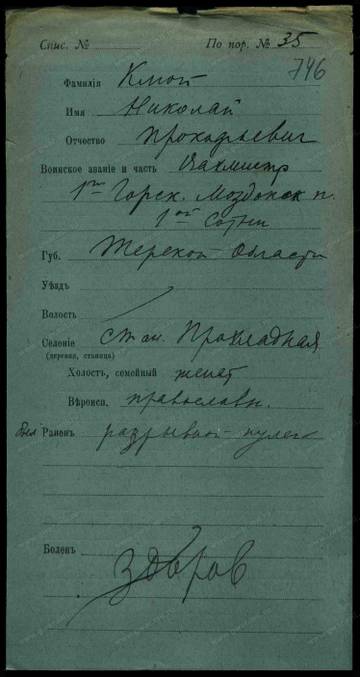 Спис. № По пор. № 35
746
Фамилія Кмой
Имя Николай
Отчество Прокофьевич
Воинское званіе и часть Вахмистр
1го Горск. Моздокск п.
1ой Сотни
Губ. Терской Области
Уѣздъ
Волость
Селеніе Стан. Прохладная
(деревня, станица)
Холостъ, семейный женат
Вѣроисп. православн.
был Раненъ разрывной пулей
Боленъ
здоров